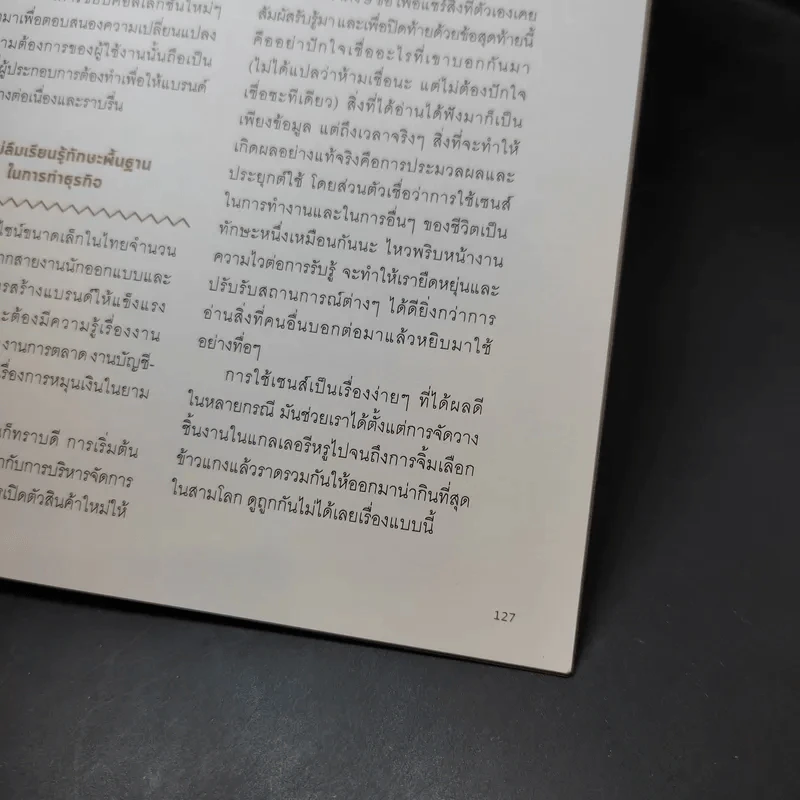 มาเพื่อตอบสนองความเปลี่ยนแปลง
ามต้องการของผู้ใช้งานนั้นถือเป็น
ผู้ประกอบการต้องทำเพื่อให้แบรนด์
างต่อเนื่องและราบรื่น
ลืมเรียนรู้ทักษะพื้นฐาน
ในการทำธุรกิจ
ไซน์ขนาดเล็กในไทยจำนวน
ากสายงานนักออกแบบและ
รสร้างแบรนด์ให้แข็งแรง
ะต้องมีความรู้เรื่องงาน
งานการตลาด งานบัญชี-
รื่องการหมุนเงินในยาม
ก็ทราบดี การเริ่มต้น
ากับการบริหารจัดการ
รเปิดตัวสินค้าใหม่ให้
เพื่อแชร์สิ่งที่ตัวเองเคย
สัมผัสรับรู้มา และเพื่อปิดท้ายด้วยข้อสุดท้ายนี้
คืออย่าปักใจเชื่ออะไรที่เขาบอกกันมา
(ไม่ได้แปลว่าห้ามเชื่อนะ แต่ไม่ต้องปักใจ
เชื่อซะทีเดียว) สิ่งที่ได้อ่านได้ฟังมาก็เป็น
เพียงข้อมูล แต่ถึงเวลาจริงๆ สิ่งที่จะทำให้
เกิดผลอย่างแท้จริงคือการประมวลผลและ
ประยุกต์ใช้ โดยส่วนตัวเชื่อว่าการใช้เซนส์
ในการทำงานและในการอื่นๆ ของชีวิตเป็น
ทักษะหนึ่งเหมือนกันนะ ไหวพริบหน้างาน
ความไวต่อการรับรู้ จะทำให้เรายืดหยุ่นและ
ปรับรับสถานการณ์ต่างๆ ได้ดียิ่งกว่าการ
อ่านสิ่งที่คนอื่นบอกต่อมาแล้วหยิบมาใช้
อย่างทื่อๆ
การใช้เซนส์เป็นเรื่องง่ายๆ ที่ได้ผลดี
ในหลายกรณี มันช่วยเราได้ตั้งแต่การจัดวาง
ชิ้นงานในแกลเลอรีหรูไปจนถึงการจิ้มเลือก
ข้าวแกงแล้วราดรวมกันให้ออกมาน่ากินที่สุด
ในสามโลก ดูถูกกันไม่ได้เลยเรื่องแบบนี้
127